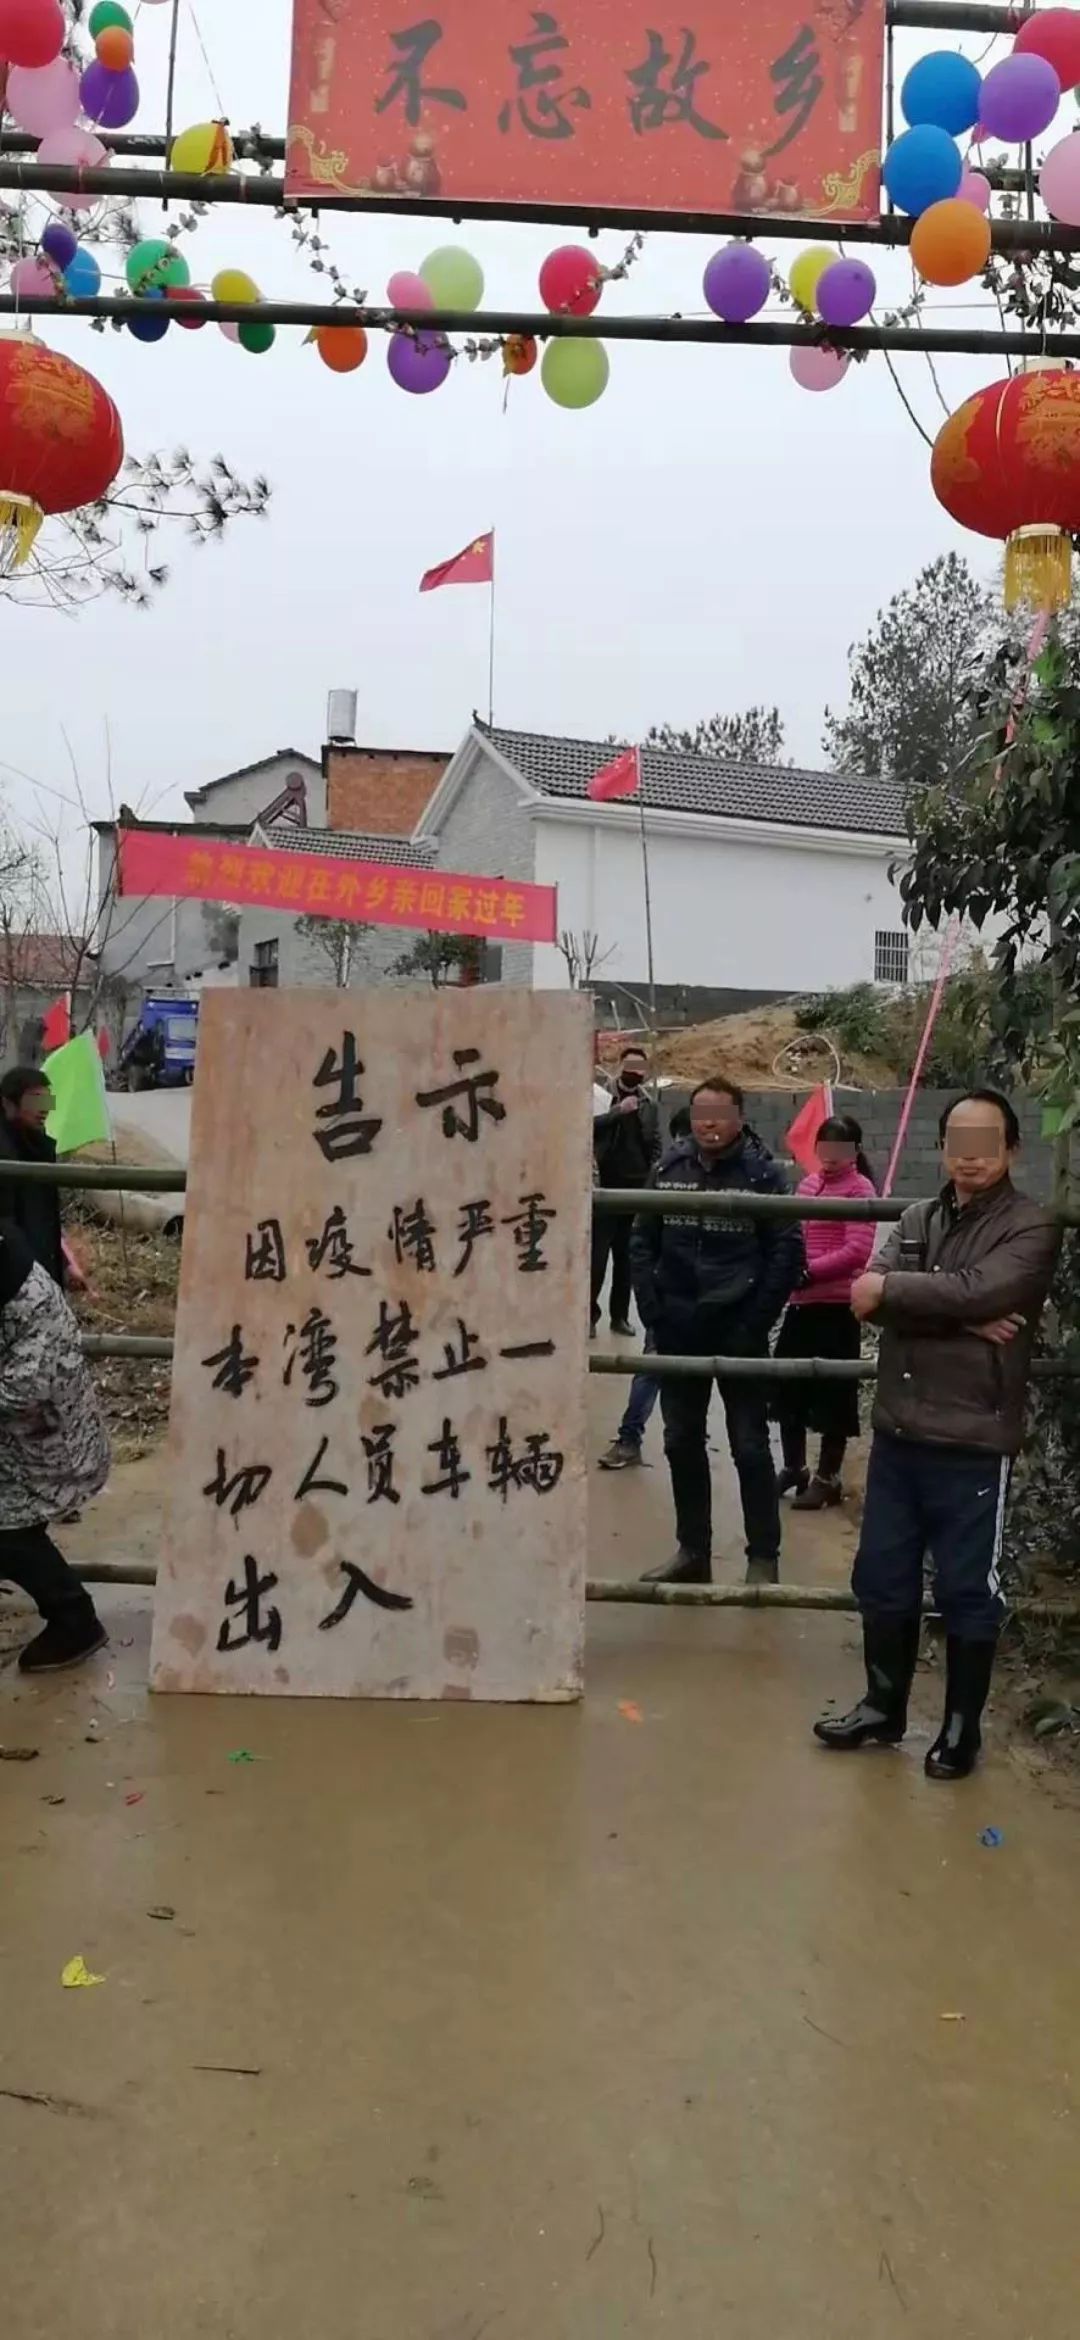 不忘故乡
热烈欢迎在外乡亲回家过年
告示
因疫情严重
本湾禁止一
切人员车辆
出入